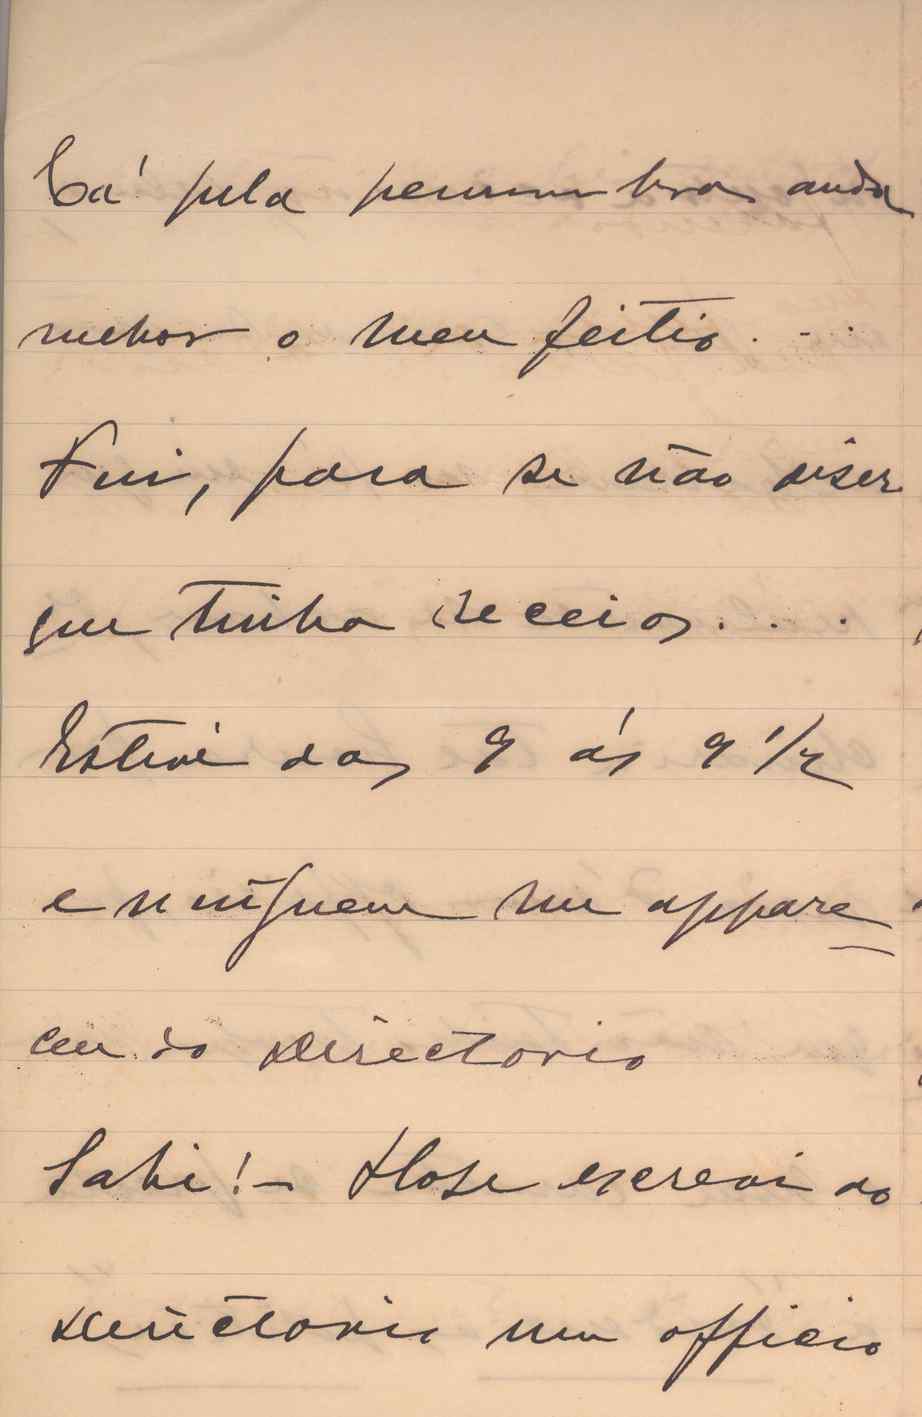 Cá pela penumbra anda
melhor o meu feitio . . .
Fui, para se não diser
que tinha receios . . .
Estive das 9 ás 9 1/2
e ninguem me appare=
ceu do Directorio
Sahi! — Hoje escrevi ao
Directorio um officio